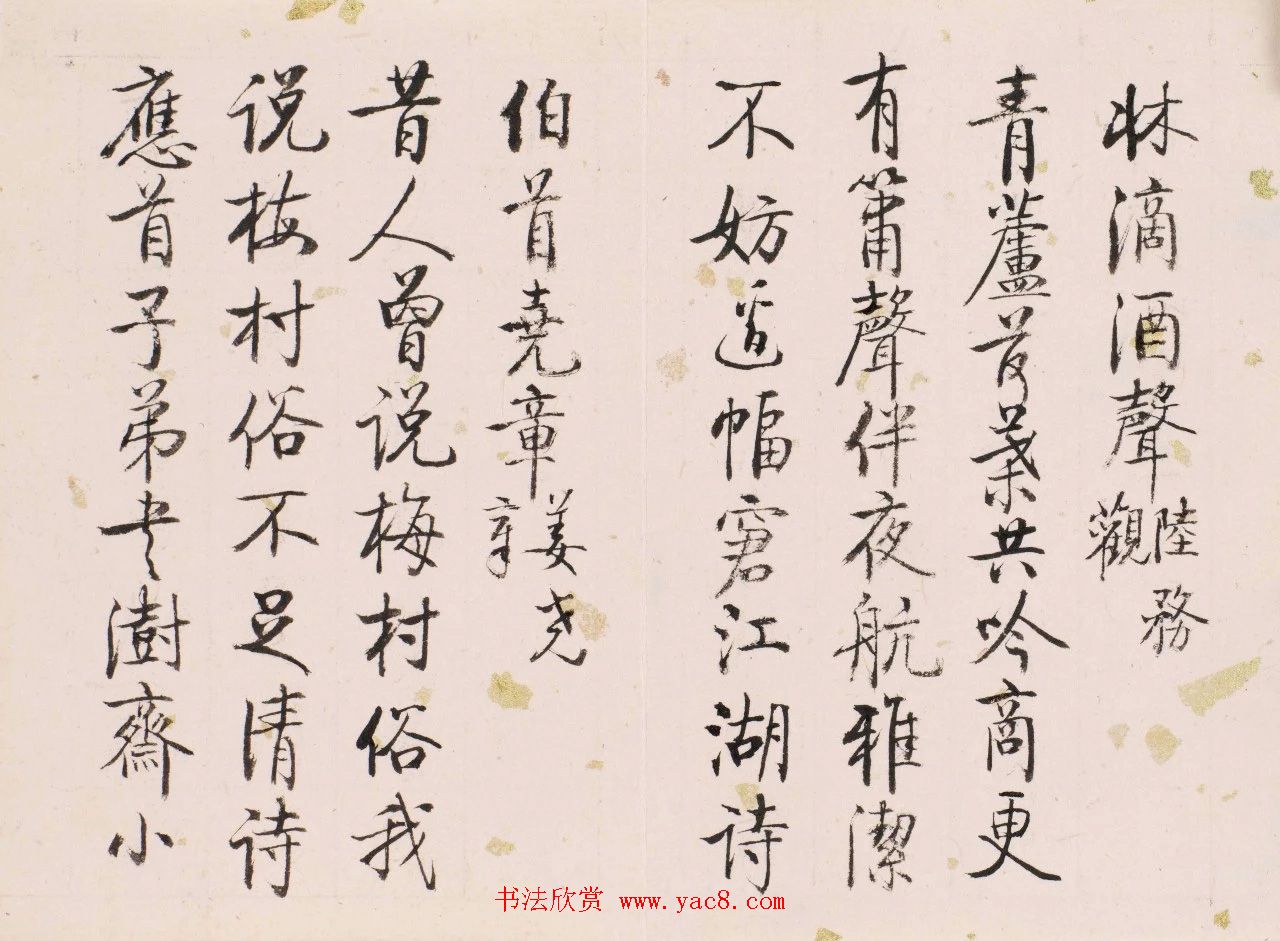 牀滴酒聲陸務觀
青蘆芳葉共吟商更
有簫聲伴夜航雅潔
不妨邊幅窘江湖詩
伯首堯章姜堯章
昔人曾说梅村俗我
说梅村俗不足清诗
應首子弟老澍齋小
书法欣赏 www.yac8.com